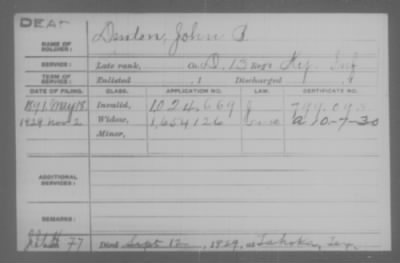 DEAT
NAME OF SOLDIER: Denton, John P.
SERVICE: Late rank, Co. D, 13 Reg't Ky. Inf
TERM OF SERVICE: Enlisted , 1 Discharged , 1
DATE OF FILING. CLASS. APPLICATION NO. LAW. CERTIFICATE NO.
1891 May 18 Invalid, 1,024,669
1929 Nov 2 Widow, 1,654,126 a 10-7-30
Minor,
ADDITIONAL SERVICES:
REMARKS:
Died Sept 12, 1929, at Tahoka, Tex.